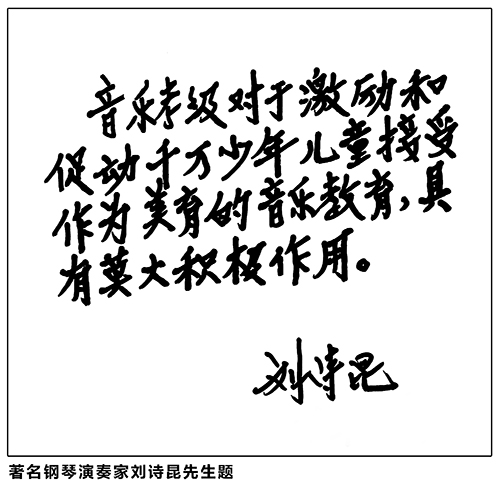 音乐考级对于激励和
促动千万少年儿童接受
作为美育的音乐教育，具
有莫大积极作用。
刘诗昆
著名钢琴演奏家刘诗昆先生题